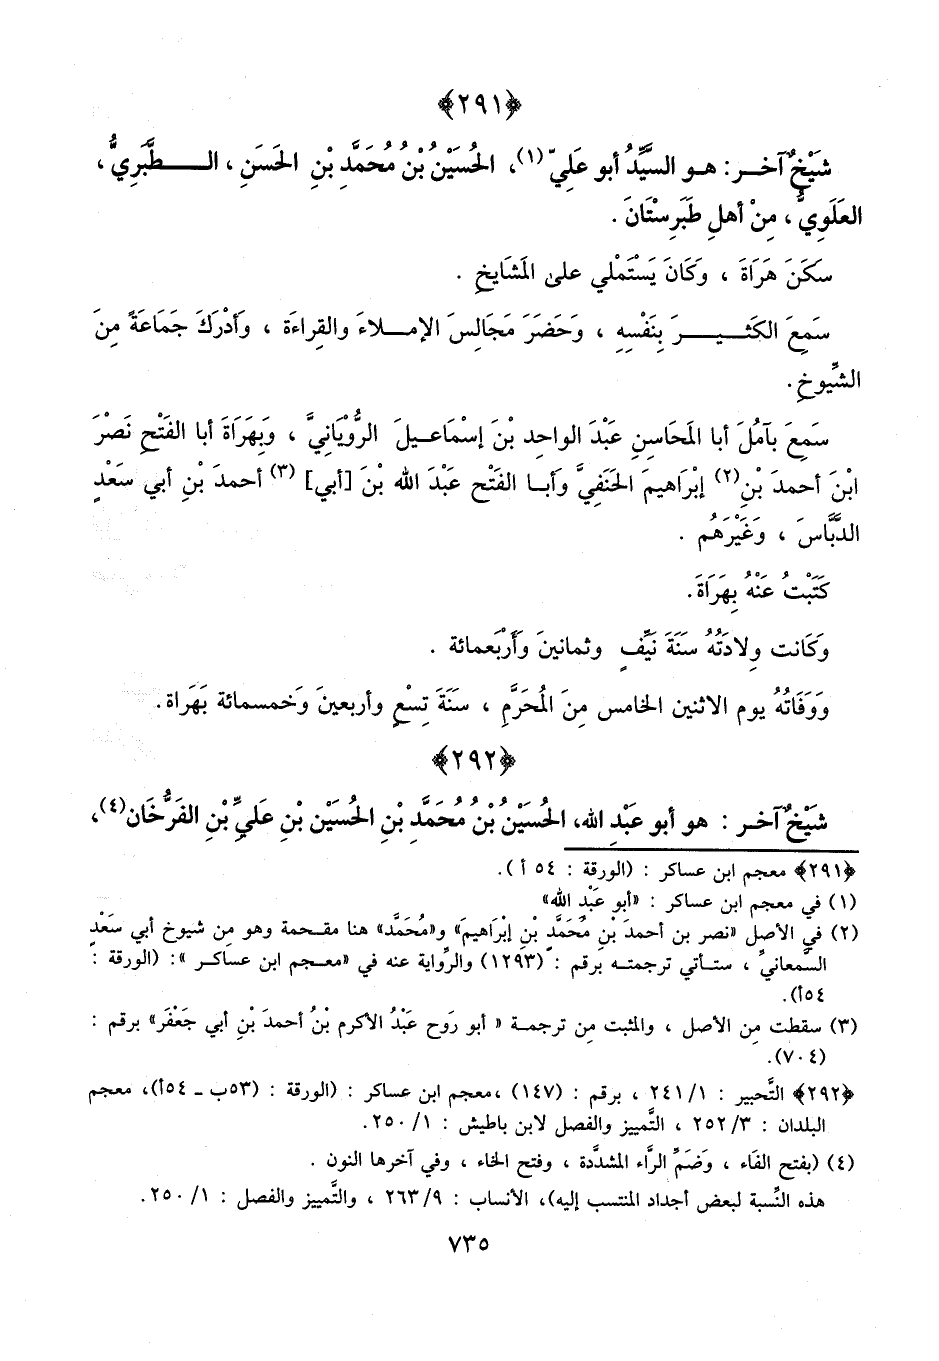 ﴿٢٩١﴾
شَيْخٌ آخـر : هـو السَّيِّدُ أبو عَلِيّ(١)، الحُسَيْنُ بْنُ مُحَمَّدِ بْنِ الحَسَنِ ، الـــطَّبَرِيُّ ،
العَلَوِيُّ ، مِنْ أهلِ طَبَرِسْتَانَ .
سَكَنَ هَرَاةَ ، وَكَانَ يَسْتَمْلي على المَشَايخِ .
سَمِعَ الكَثـــيـــرَ بِنَفْسِهِ ، وَحَضَرَ مَجَالِسَ الإمــلاءَ والقِراءَة ، وَأدْرَكَ جَمَاعَةً مِنَ
الشِّيوخِ.
سَمِعَ بآمُلَ أبا المَحَاسِنِ عَبْدَ الواحِدِ بْنَ إسْمَاعـيـلَ الرُّويَانِيَّ ، وَبِهَرَاةَ أبا الفَتْحِ نَصْرَ
ابْنَ أحمدَ بْنِ(٢) إبْرَاهيمَ الحَنَفِيَّ وَأبـا الفَتْح عَبْدَ الله بْنَ [أبي] (٣) أحمدَ بْنِ أبي سَعْدٍ
الدَّبَّاسَ ، وَغَيْرَهُم .
كَتَبْتُ عَنْهُ بِهَرَاةَ.
وَكَانت وِلادَتُهُ سَنَةَ نَيِّفٍ وثمانينَ وَأَرْبَعمائة .
وَوَفَاتُهُ يوم الاثنين الخامس مِنَ المُحَرَّمِ ، سَنَةَ تِسْعٍ وأربعينَ وَخمسمائة بَهَراة.
﴿٢٩٢﴾
شَيْخٌ آخـر : هو أبو عَبْدِ الله، الحُسَيْنُ بْنُ مُحَمَّدِ بْنِ الحُسَيْنِ بْنِ عَلِيِّ بْنِ الفَرُّخَان(٤)،
﴿٢٩١﴾ معجم ابن عساكر : (الورقة : ٥٤ أ).
(١) في معجم ابن عساكر : «أبو عَبْدِ الله»
(٢) في الأصل «نصر بن أحمدَ بْنِ مُحَمَّدِ بْنِ إبْرَاهيم» و«مُحَمَّد» هنا مقـحمة وهو مِن شيوخ أبي سَعْدٍ
السَّمعانيِّ ، ستـأتي ترجمتـه برقم : (١٢٩٣) والرِّواية عنه في «معـجم ابن عساكـر »: (الورقة :
٥٤أ).
(٣) سقطت مِن الأصل ، والمثبت مِن ترجمـة « أبو رَوح عَبْدُ الأكرم بْنُ أحمدَ بْنِ أبي جَعْفَر» برقم :
(٧٠٤).
﴿٢٩٢﴾ التَّحبير : ٢٤١/١ ، برقم : (١٤٧) ،معجم ابن عساكر : (الورقة : (٥٣ب ـ ٥٤أ)، معجم
البلدان : ٢٥٢/٣ ، التَّمييز والفصل لابن باطيش : ٢٥٠/١.
(٤) (بفتح الفَاء ، وَضَمِّ الرَّاء المشدَّدة ، وفتح الخاء ، وفي آخرها النون .
هذه النِّسبة لبعض أجداد المنتسب إليه)، الأنساب : ٢٦٣/٩ ، والتَّمييز والفصل : ٢٥٠/١.
٧٣٥